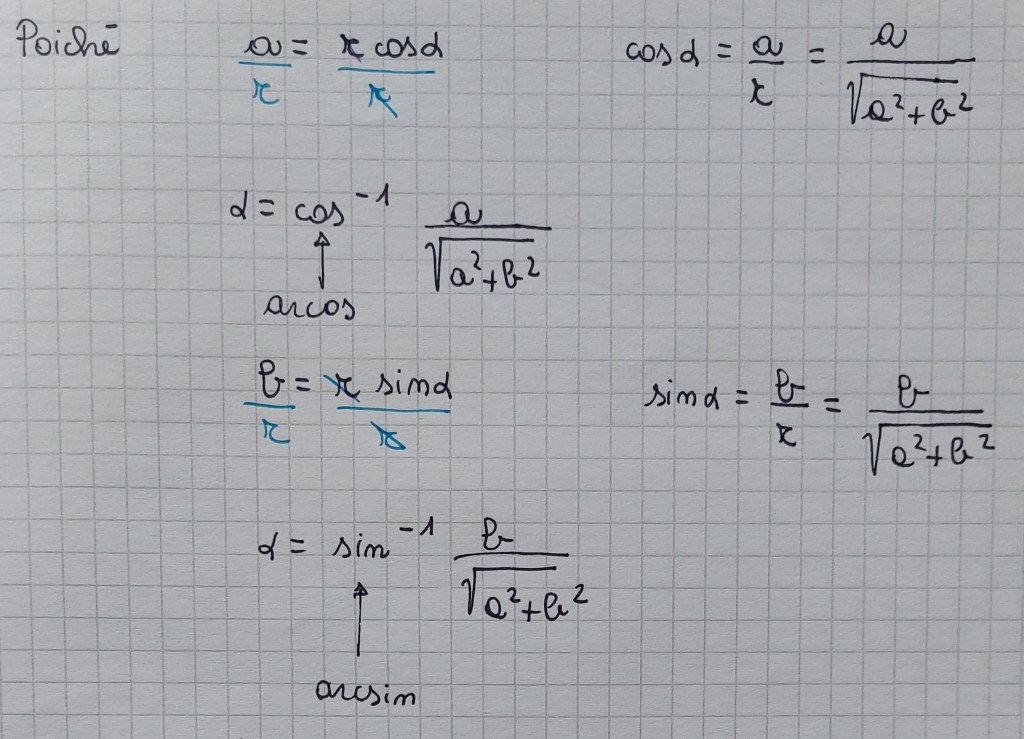 Poichè a/r = r cosα/r cosα = a/r = a/√(a²+b²)
α = cos⁻¹ a/√(a²+b²)
arcos
b/r = r sinα/r sinα = b/r = b/√(a²+b²)
α = sin⁻¹ b/√(a²+b²)
arcsin